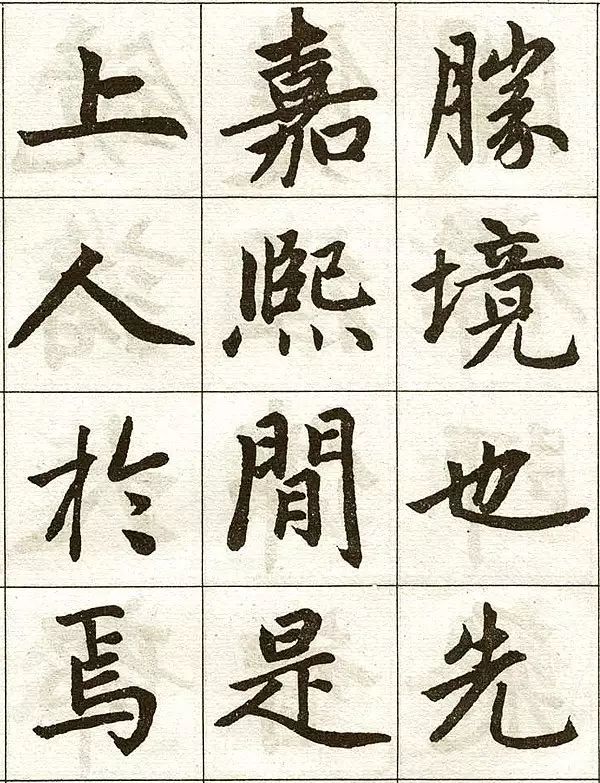 勝境也先
嘉熙間是
上人於焉